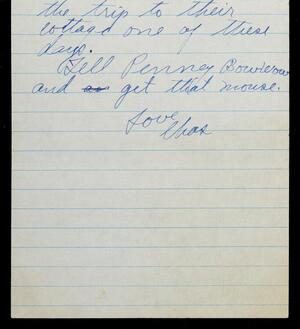 the trip to their
cottage one of these
days.
Tell Penney Bowwow
and get that mouse.
Love
Chas